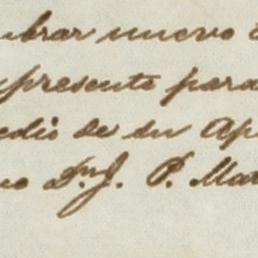 brar nuevo
presente para
edio de su Ap
no Dn J. P. Mat